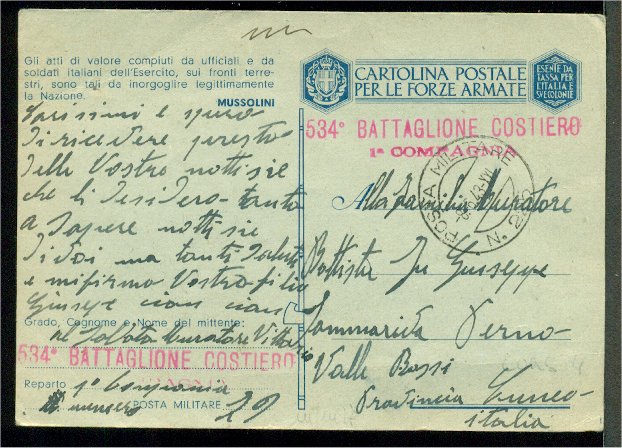 Gli atti di valore compiuti da ufficiali e da
soldati italiani dell'Esercito, sui fronti terre-
stri, sono tali da inorgoglire legittimamente
la Nazione.
MUSSOLINI
Carissimi e spero
di ricevere presto
delle Vostre nottisie
che di desidero tanto
a sapere nottisie
di Voi ma tanti saluti
e mi firmo Vostro filio
Giusepe ciau ciau
Grado, Cognome e Nome del mittente:
Muratore
534° BATTAGLIONE COSTIERO
Reparto 1° Compania
numero POSTA MILITARE 29
CARTOLINA POSTALE
PER LE FORZE ARMATE
ESENTE DA
TASSA PER
L'ITALIA E
SVE COLONIE
534° BATTAGLIONE COSTIERO
1ª COMPAGNIA
POSTA MILITARE N.
Alla Familia Muratore
Battista Fu Giuseppe
Verno
Valle
Provincia Cuneo
italia